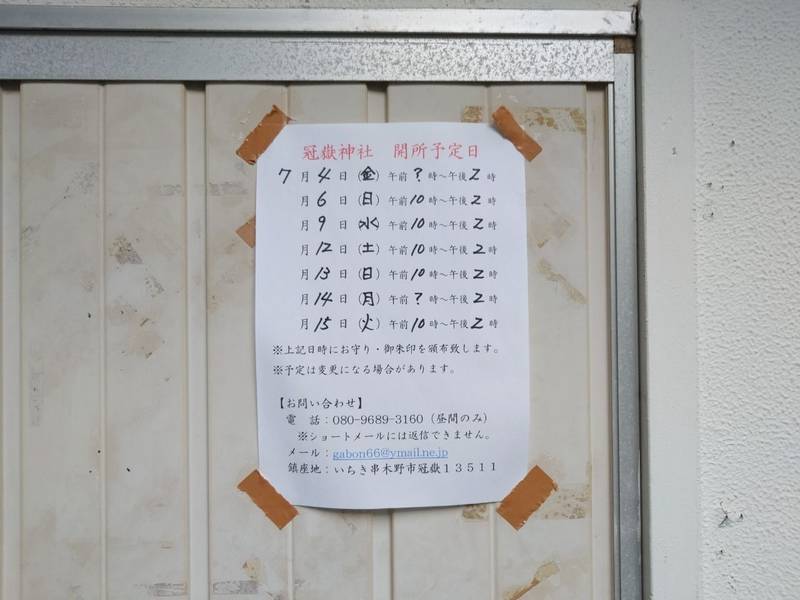 冠嶽神社　開所予定日
7月4日(金)午前?時～午後2時
月6日(日)午前10時～午後2時
月9日(水)午前10時～午後2時
月12日(土)午前10時～午後2時
月13日(日)午前10時～午後2時
月14日(月)午前?時～午後2時
月15日(火)午前10時～午後2時
※上記日時にお守り・御朱印を頒布致します。
※予定は変更になる場合があります。
【お問い合わせ】
電　話：080-9689-3160（昼間のみ）
※ショートメールには返信できません。
メール：gabon66@ymail.ne.jp
鎮座地：いちき串木野市冠嶽１３５１１